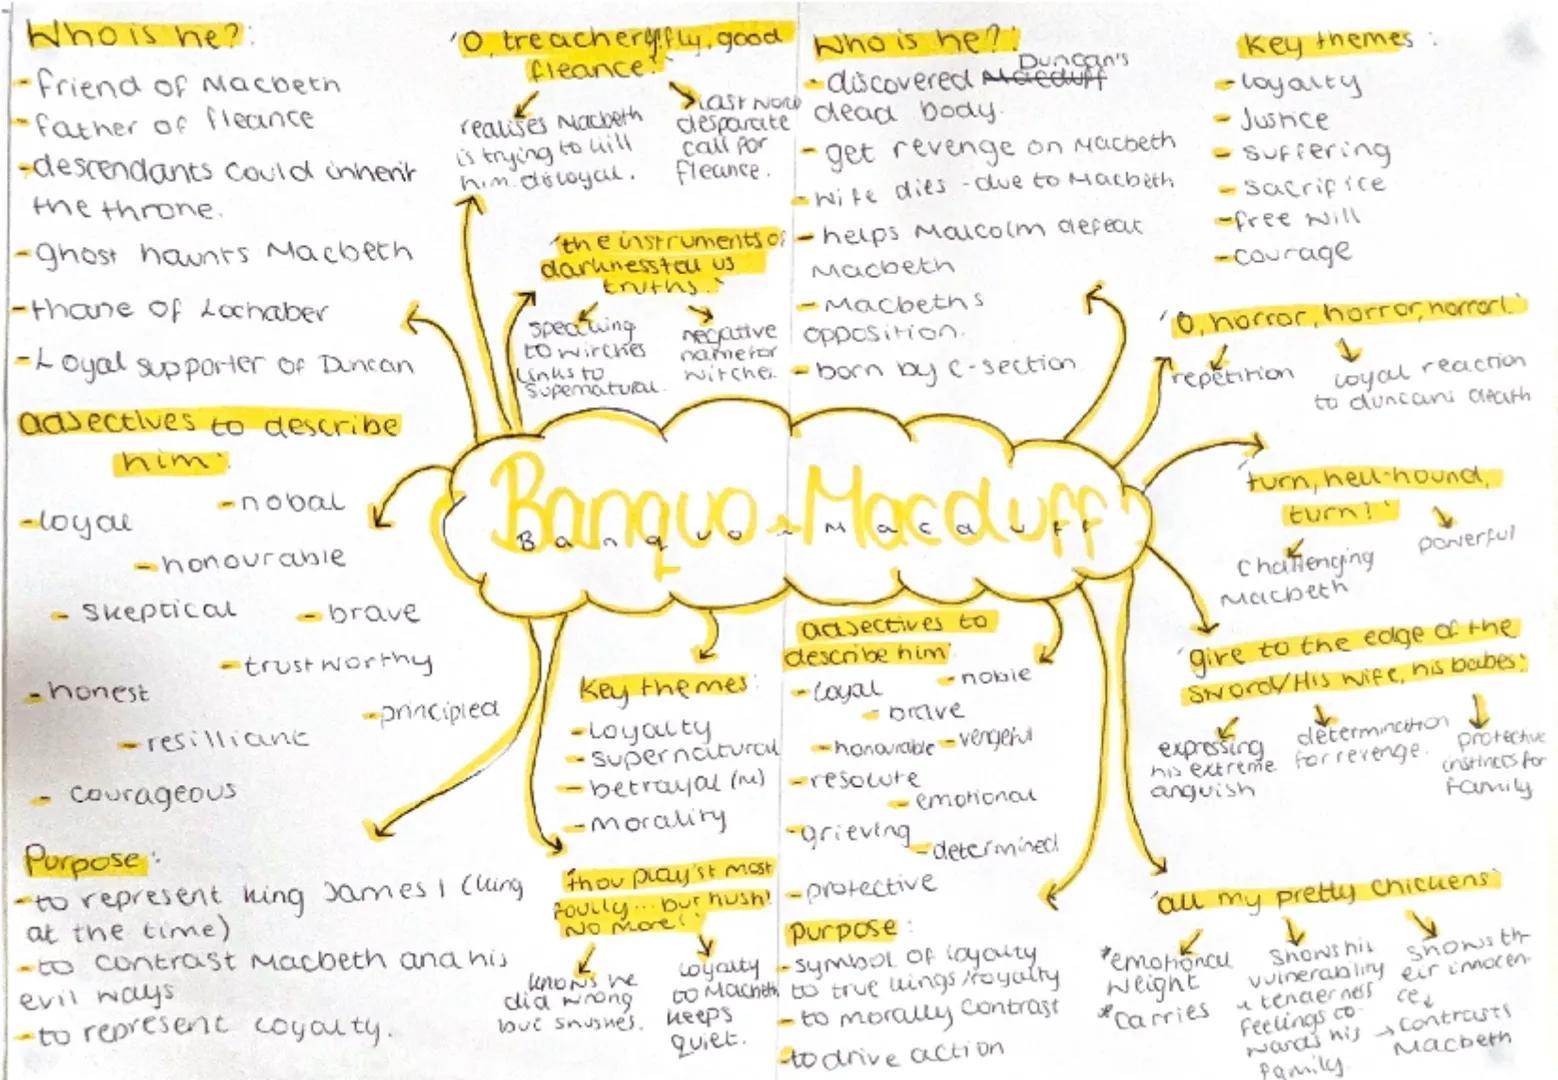 Who is he?:
- friend of Macbeth
- father of fleance
- descendants could inherit
the throne.
- ghost haunts Macbeth
- thane of Lochaber
- Loyal supporter of Duncan
adjectives to describe
him:
- loyal
- nobal
- honourable
- skeptical
- brave
- trustworthy
- honest
- principled
- resilliant
- courageous
Purpose:
- to represent king James I (king
at the time)
- to contrast Macbeth and his
evil ways
- to represent loyalty.
'O, treachery! fly, good
fleance!'
realises Macbeth
is trying to kill
him. disloyal.
last
desparate
call for
fleance.
'the instruments of
darkness tell us
truths.'
speaking
to witches
links to
supernatural.
negative
name for
witches.
Banquo ~ Macduff
Banquo ~ Macduff
Key themes:
- loyalty
- supernatural
- betrayal (M)
- morality
'thou play'st most
foully... but hush!
No more!'
knows he
did wrong
but shushes.
loyalty
to Macbeth
keeps
quiet.
Who is he?:
- discovered Macduff Duncan's
dead body.
- get revenge on Macbeth
- wife dies - due to Macbeth
- helps Malcolm defeat
Macbeth
- Macbeths
opposition.
- born by c-section.
adjectives to
describe him:
- loyal
- noble
- brave
- honourable
- vengeful
- resolute
- emotional
- grieving
- determined
- protective
purpose:
- symbol of loyalty
to true kings/royalty
- to morally contrast
- to drive action
Key themes:
- loyalty
- Justice
- suffering
- sacrifice
- free will
- courage
'O, horror, horror, horror!'
repetition
loyal reaction
to duncans death
'turn, hell-hound,
turn!'
challenging
Macbeth
powerful
'give to the edge of the
sword/His wife, his babes;'
expressing
his extreme
anguish
determination
for revenge.
protective
instincts for
family
'all my pretty chickens'
*emotional
weight
*carries
shows his
vulnerability
& tenderness
feelings to-
wards his
family.
shows th-
eir innocen-
ce
→ contrasts
Macbeth